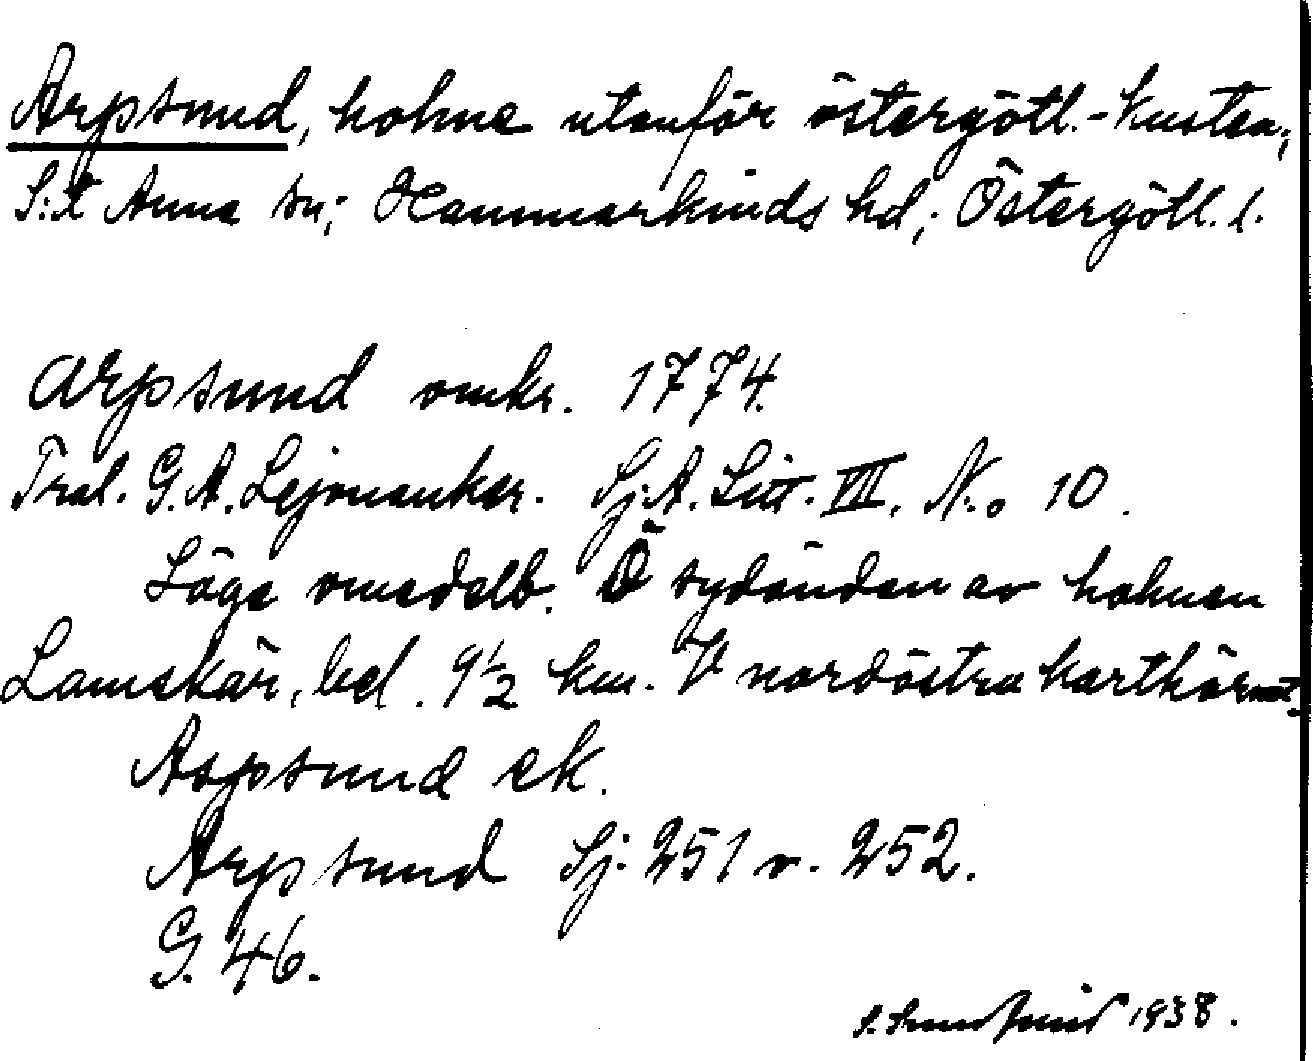 Arpsund, holme utanför östergötl.-kusten,
S:t Anna sn; Hammarkinds hd; Östergötl. l.
Arpsund omkr. 1774.
Tral. G. A. Lejonanker. Sj. A. Litt. VIII. N:o 10.
Läge omedelb. Ö sydändan av holmen
Lamskär, bel. 9½ km. V nordöstra karthörnet.
Aspsund ek.
Arpsund Sj. 251 o. 252.
G. 46.
1938.